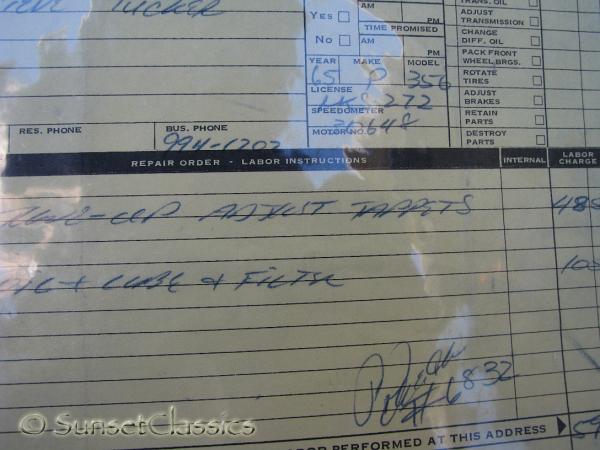 TUCKER
YES
NO
AM
PM
TIME PROMISED
AM
PM
TRANS. OIL
ADJUST TRANSMISSION
CHANGE DIFF. OIL
PACK FRONT WHEEL BRGS.
ROTATE TIRES
ADJUST BRAKES
RETAIN PARTS
DESTROY PARTS
YEAR MAKE MODEL
65 P 356
LICENSE
272
SPEEDOMETER
MOTOR NO.
RES. PHONE BUS. PHONE
994-1202
REPAIR ORDER - LABOR INSTRUCTIONS INTERNAL LABOR CHARGE
TUNE-UP ADJUST TAPPETS
LUBE & FILTER
#6832
PERFORMED AT THIS ADDRESS
© SunsetClassics